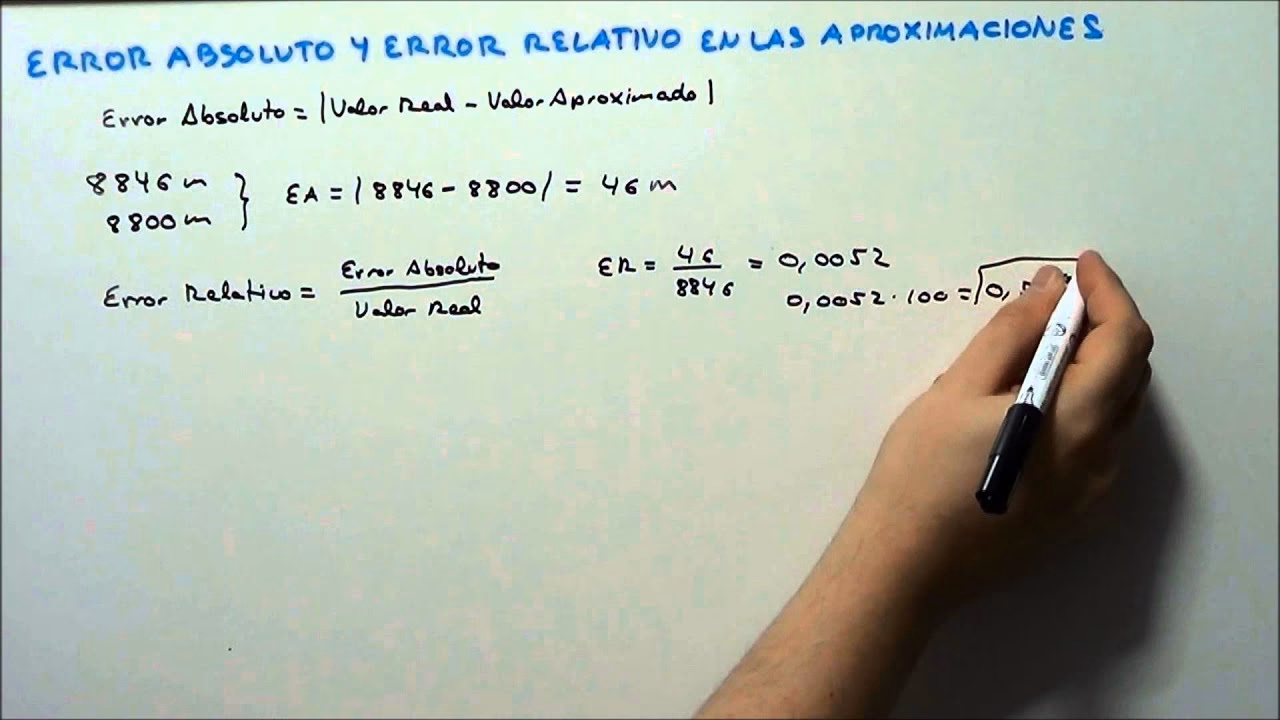 ERROR ABSOLUTO Y ERROR RELATIVO EN LAS APROXIMACIONES
Error Absoluto = |Valor Real - Valor Aproximado|
8846 m
8800 m
} EA = |8846 - 8800| = 46 m
Error Relativo = Error Absoluto / Valor Real
ER = 46 / 8846 = 0,0052
0,0052 · 100 = 0,5